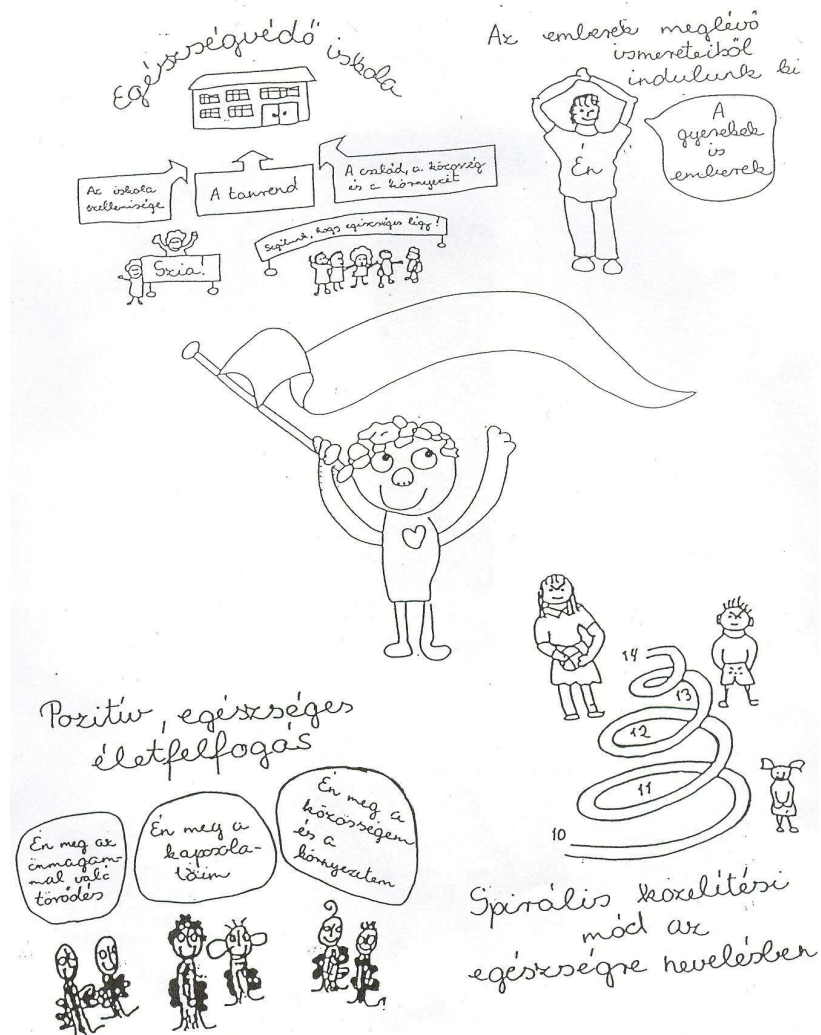 Egészségvédő iskola
Az iskola
szellemisége
A tanrend
A család, a közösség
és a környezet
Szia!
Segítünk, hogy egészséges légy!
Az emberek meglévő
ismereteiből
indulunk ki
Én
A
gyerekek
is
emberek
Pozitív, egészséges
életfelfogás
Én meg az
önmagam-
mal való
törődés
Én meg a
kapcsola-
taim
Én meg a
közösségem
és a
környezetem
14
13
12
11
10
Spirális közelítési
mód az
egészségre nevelésben